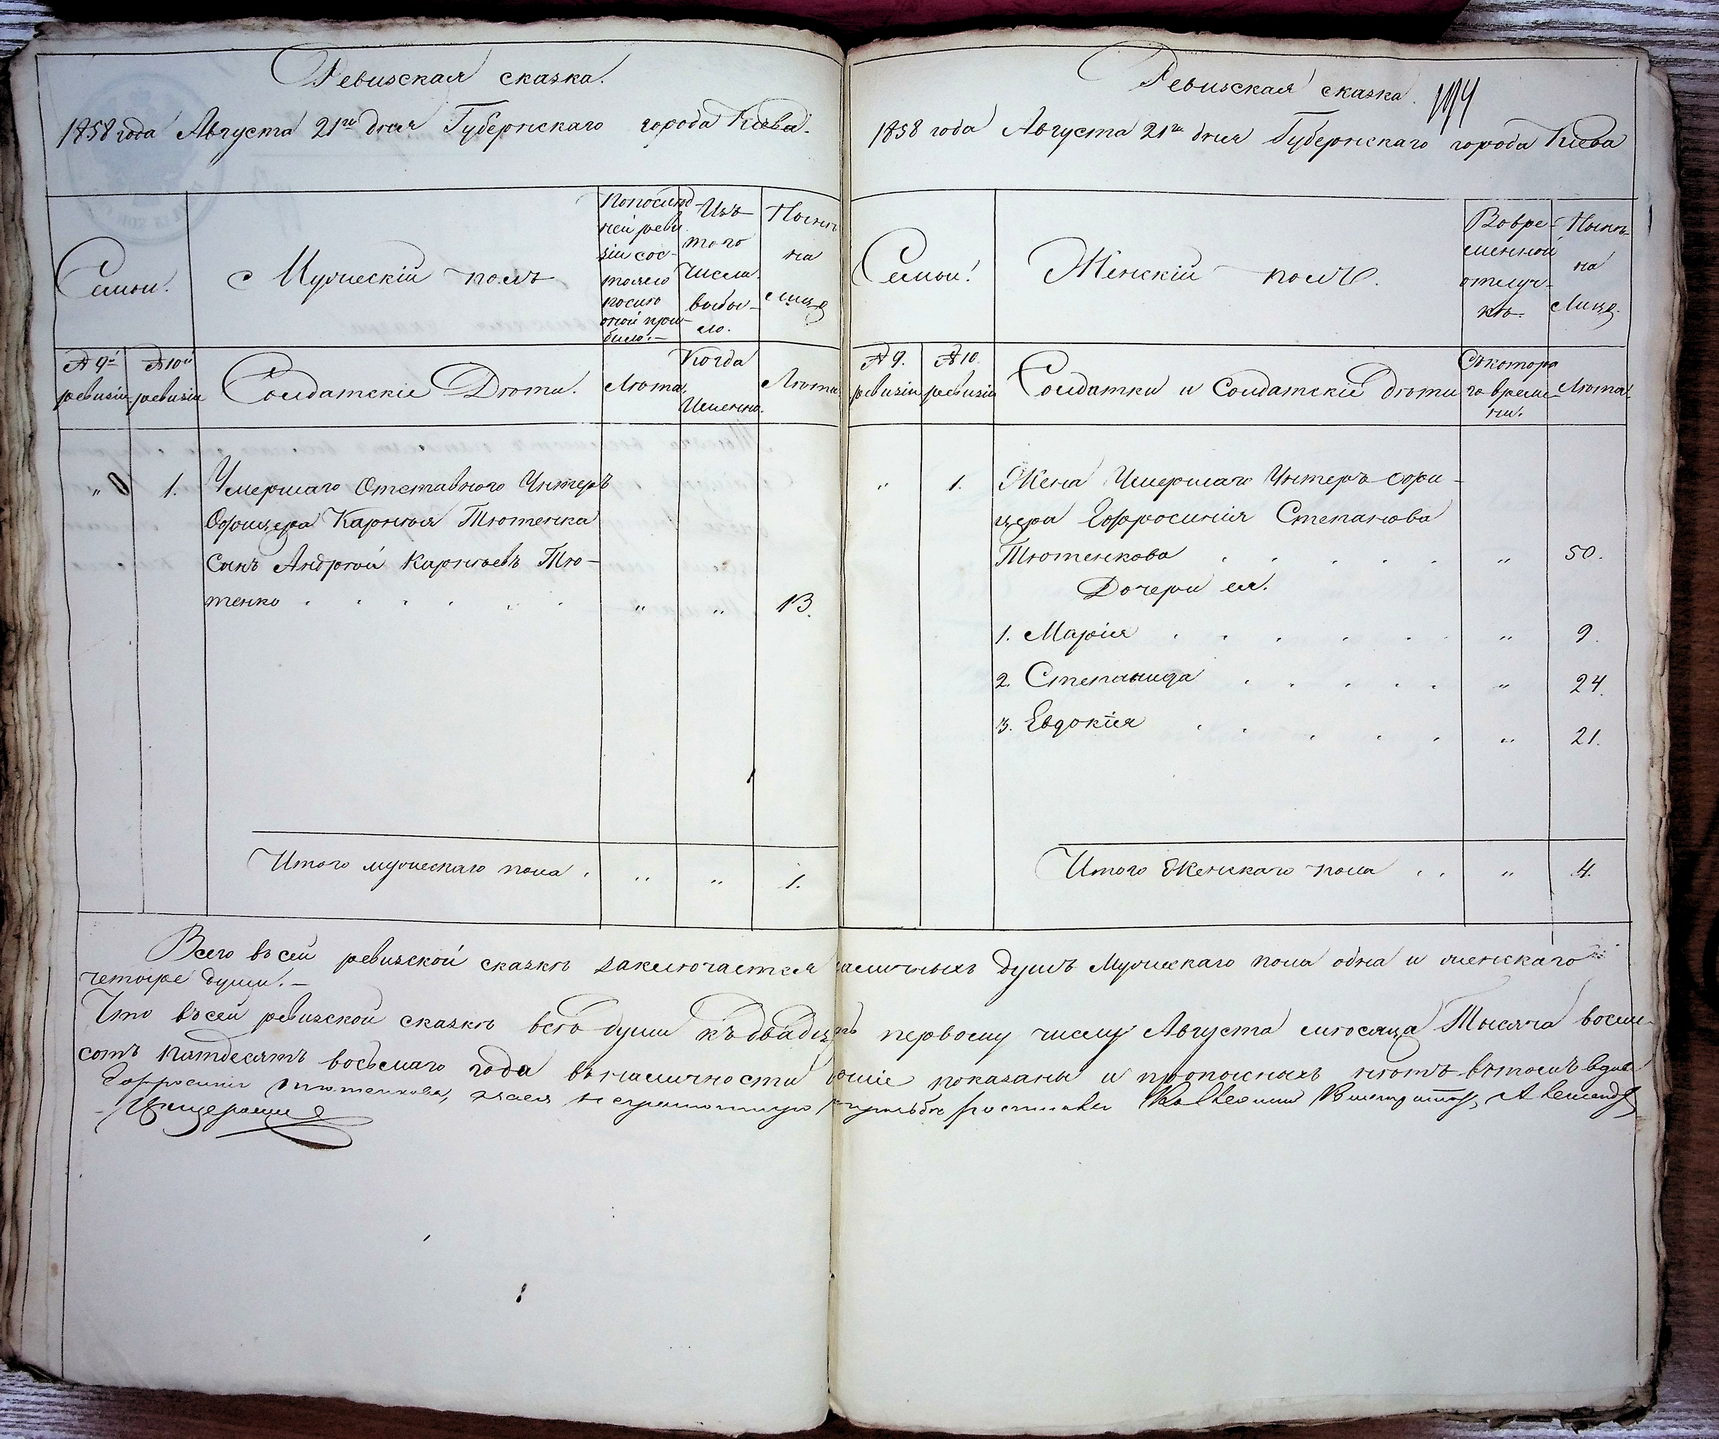 Ревизская сказка.
1858 года Августа 21го дня Губернскаго города Кіева.
Семьи.
Мужескій полъ
По послѣд-
ней реви-
зіи сос-
тояло
и после
оной при-
было.
Изъ
того
числа
выбы-
ло.
Нынѣ
на
лицо
№ 9й
ревизіи
№ 10й
ревизіи
Солдатскіе Дѣти.
Лѣта
Когда
Именно.
Лѣта
„ 1. Умершаго Отставного Унтеръ
Офицера Карнѣя Тютенка
Сынъ Андрей Карнѣевъ Тю-
тенко . . . . . . „ „ 13.
Итого мужескаго пола . „ „ 1.
Ревизская сказка.
1858 года Августа 21го дня Губернскаго города Кіева
Семьи.
Женскій полъ.
Вовре-
менной
отлуч-
кѣ
Нынѣ
на
Лицо.
№ 9.
ревизіи
№ 10.
ревизіи
Солдатки и Солдатскіе дѣти
Съкотора
го време-
ни.
Лѣта
„ 1. Жена Умершаго Унтеръ-офи-
цера Ефросинія Степанова
Тютенкова . . . . . „ 50.
Дочери ея.
1. Марія . . . . . . „ 9.
2. Степанида . . . . . „ 24.
3. Евдокія . . . . . „ 21.
Итого Женскаго пола . . „ 4.
Всего въ сей ревизской сказкѣ заключается наличныхъ душъ Мужескаго пола одна и женскаго
четыре души.
Что въ сей ревизской сказкѣ всѣ души къ двадцать первому числу Августа мѣсяца Тысяча восем-
сотъ пятдесятъ восьмаго года въ наличности показаны и прописныхъ нѣтъ въ томъ вдова
Ефросинія Тютенкова,